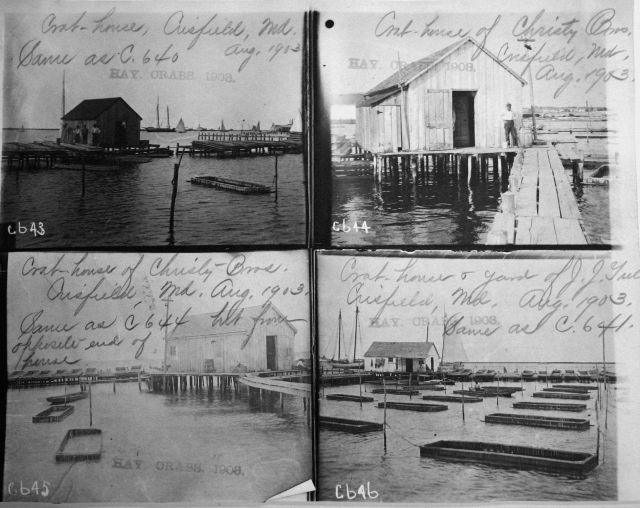 Crab-house, Crisfield, Md.
Same as C.640 Aug. 1903
HAY. CRABS. 1903.
C643
Crab-house of Christy Bros.
Crisfield, Md.
HAY. CRABS. 1903.
Aug. 1903
C644
Crab-house of Christy Bros.
Crisfield, Md. Aug. 1903.
Same as C644 but from
opposite end of
house
HAY. CRABS. 1903.
C645
Crab house & yard of J. J.
Crisfield, Md. Aug. 1903.
HAY. CRABS. 1903.
Same as C.641.
C646